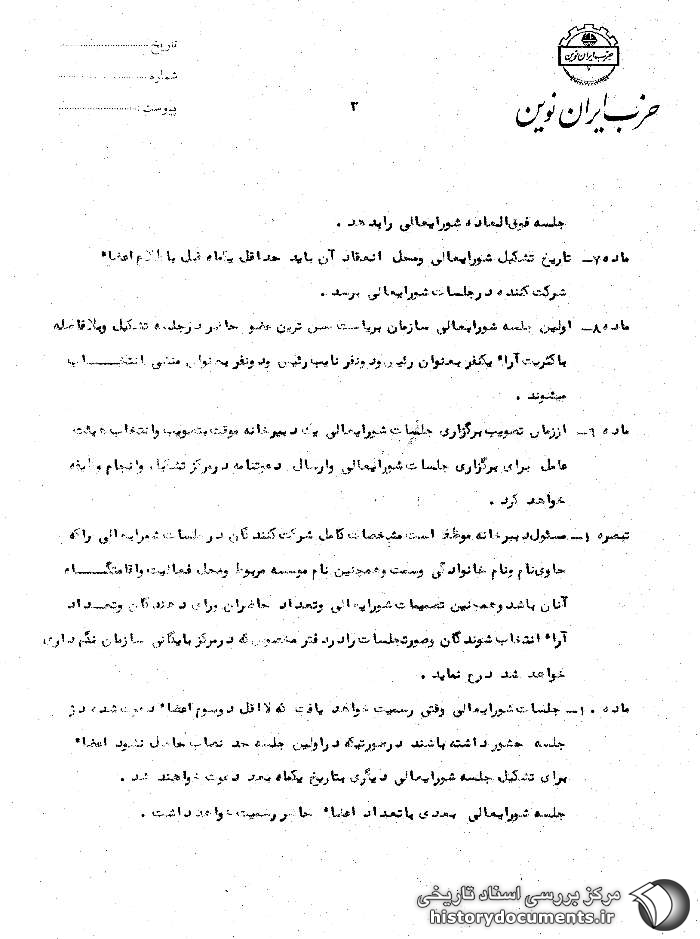 حزب ایران نوین
حزب ایران نوین
تاریخ
شماره
پیوست
۳
جلسه فوق‌العاده شورایعالی را بدهد .
ماده ۷ـ تاریخ تشکیل شورایعالی و محل انعقاد آن باید حداقل یکماه قبل باطلاع اعضاء
شرکت کننده در جلسات شورایعالی برسد .
ماده ۸ـ اولین جلسه شورایعالی سازمان بریاست مسن ترین عضو حاضر در جلسه تشکیل و بلافاصله
باکثریت آراء یکنفر بعنوان رئیس و دو نفر نایب رئیس و دو نفر بعنوان منشی انتخـــــاب
میشوند .
ماده ۹ـ از زمان تصویب برگزاری جلسات شورایعالی یک دبیرخانه موقت بتصویب و انتخاب هیئت
عامل برای برگزاری جلسات شورایعالی و ارسال دعوتنامه در مرکز تشکیل و انجام وظیفه
خواهد کرد .
تبصره ۱ـ مسئول دبیرخانه موظف است مشخصات کامل شرکت کنندگان در جلسات شورایعالی را که
حاوی نام و نام خانوادگی و سمت و همچنین نام موسسه مربوط و محل فعالیت و اقامتگـــاه
آنان باشد و همچنین تصمیمات شورایعالی و تعداد حاضران و رای دهندگان و تعـداد
آراء انتخاب شوندگان و صورتجلسات را در دفتر مخصوص که در مرکز بایگانی سازمان نگهداری
خواهد شد درج نماید .
ماده ۱۰ـ جلسات شورایعالی وقتی رسمیت خواهد یافت که لااقل دو سوم اعضاء دعوت شده در
جلسه حضور داشته باشند در صورتیکه در اولین جلسه حد نصاب حاصل نشود اعضاء
برای تشکیل جلسه شورایعالی دیگری بتاریخ یکماه بعد دعوت خواهند شد .
جلسه شورایعالی بعدی با تعداد اعضاء حاضر رسمیت خواهد داشت .
مرکز بررسی اسناد تاریخی
historydocuments.ir